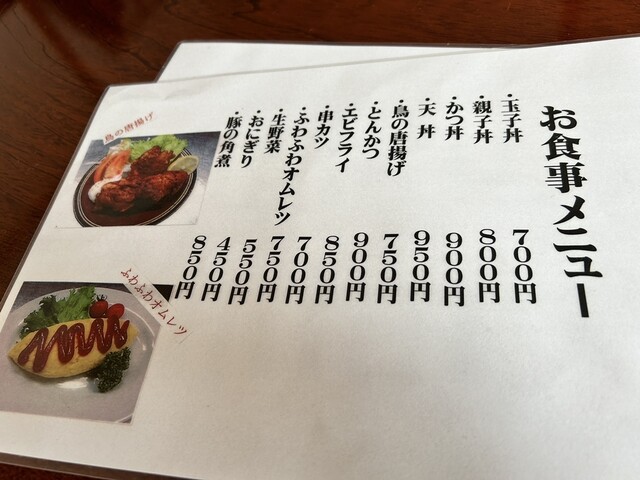 お食事メニュー
・玉子丼 700円
・親子丼 800円
・かつ丼 900円
・天丼 950円
・鳥の唐揚げ 750円
・とんかつ 900円
・エビフライ 850円
・串カツ 700円
・ふわふわオムレツ 750円
・生野菜 550円
・おにぎり 450円
・豚の角煮 850円
鳥の唐揚げ
ふわふわオムレツ